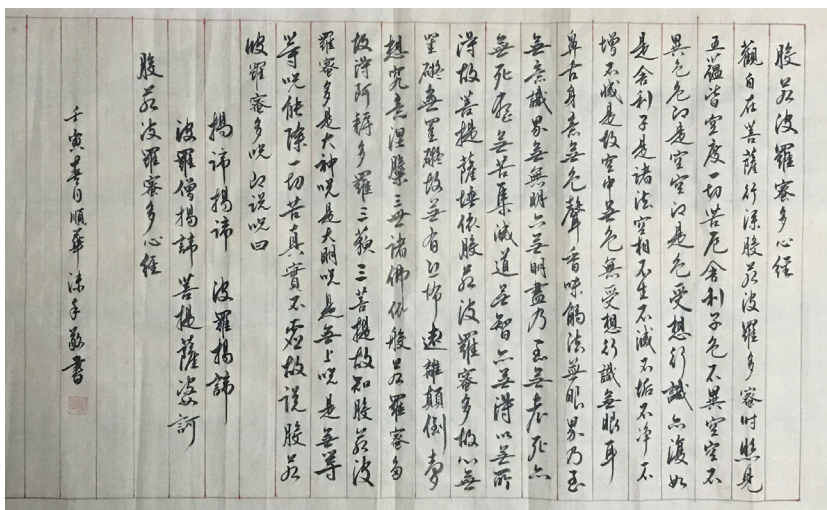 般若波羅蜜多心經
觀自在菩薩行深般若波羅多蜜時照見
五蘊皆空度一切苦厄舍利子色不異空空不
異色色即是空空即是色受想行識亦復如
是舍利子是諸法空相不生不滅不垢不净不
增不減是故空中無色無受想行識無眼耳
鼻舌身意無色聲香味觸法無眼界乃至
無意識界無無明亦無明盡乃至無老死亦
無老死盡無苦集滅道無智亦無得以無所
得故菩提薩埵依般若波羅蜜多故心無
罣礙無罣礙故無有恐怖遠離顛倒夢
想究竟涅槃三世諸佛依般若羅蜜多
故得阿耨多羅三藐三菩提故知般若波
羅蜜多是大神咒是大明咒是無上咒是無等
等咒能除一切苦真實不虛故說般若
波羅蜜多咒即說咒曰
揭諦揭諦 波羅揭諦
波羅僧揭諦 菩提薩婆訶
般若波羅蜜多心經
壬寅春月順華沫手敬書